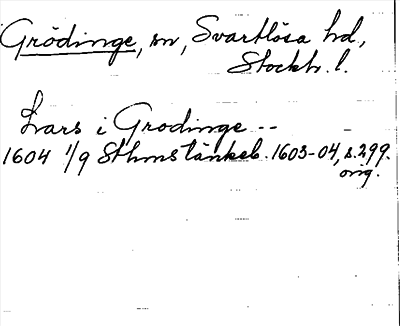 Grödinge, sn, Svartlösa hd,
Stockh. l.
Lars i Grodinge --
1604 1/9 Sthms tänkeb. 1603-04, s. 299.
orig.